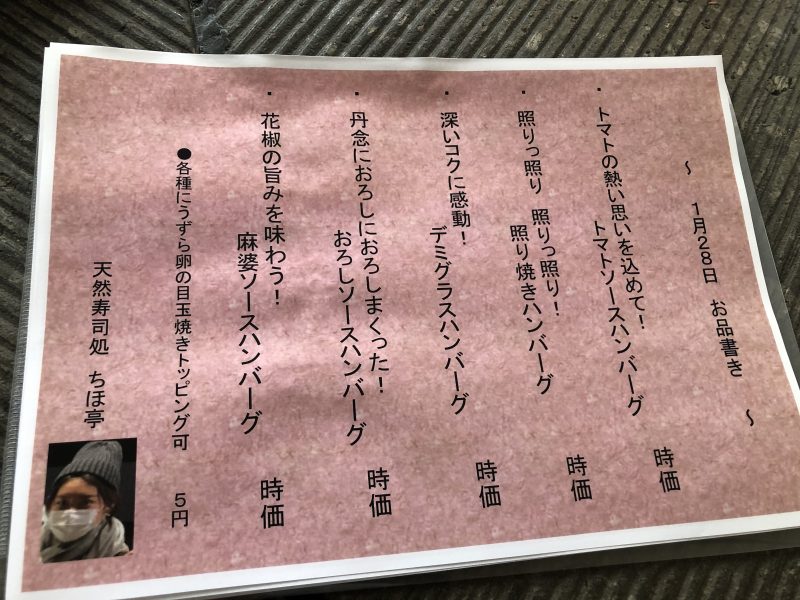 ～ 1月28日 お品書き ～
・トマトの熱い思いを込めて！
トマトソースハンバーグ 時価
・照りっ照り 照りっ照り！
照り焼きハンバーグ 時価
・深いコクに感動！
デミグラスハンバーグ 時価
・丹念におろしにおろしまくった！
おろしソースハンバーグ 時価
・花椒の旨みを味わう！
麻婆ソースハンバーグ 時価
●各種にうずら卵の目玉焼きトッピング可 5円
天然寿司処 ちほ亭